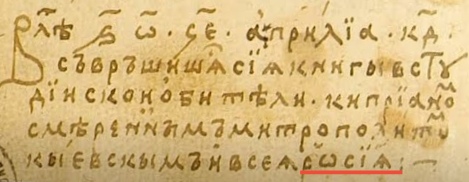 В лѣ҃ ҂ѕ҃ ѿ҃ . ч҃є . а҆прилїа . к҃д .
съвръшишѧ сїѧ книгы в стꙋ
дїискои ѻ҆бители . кипрїано ͫ
смѣреннымъ митрополито ͫ
кыевскымъ и҆ всеѧ рѡсїѧ : —